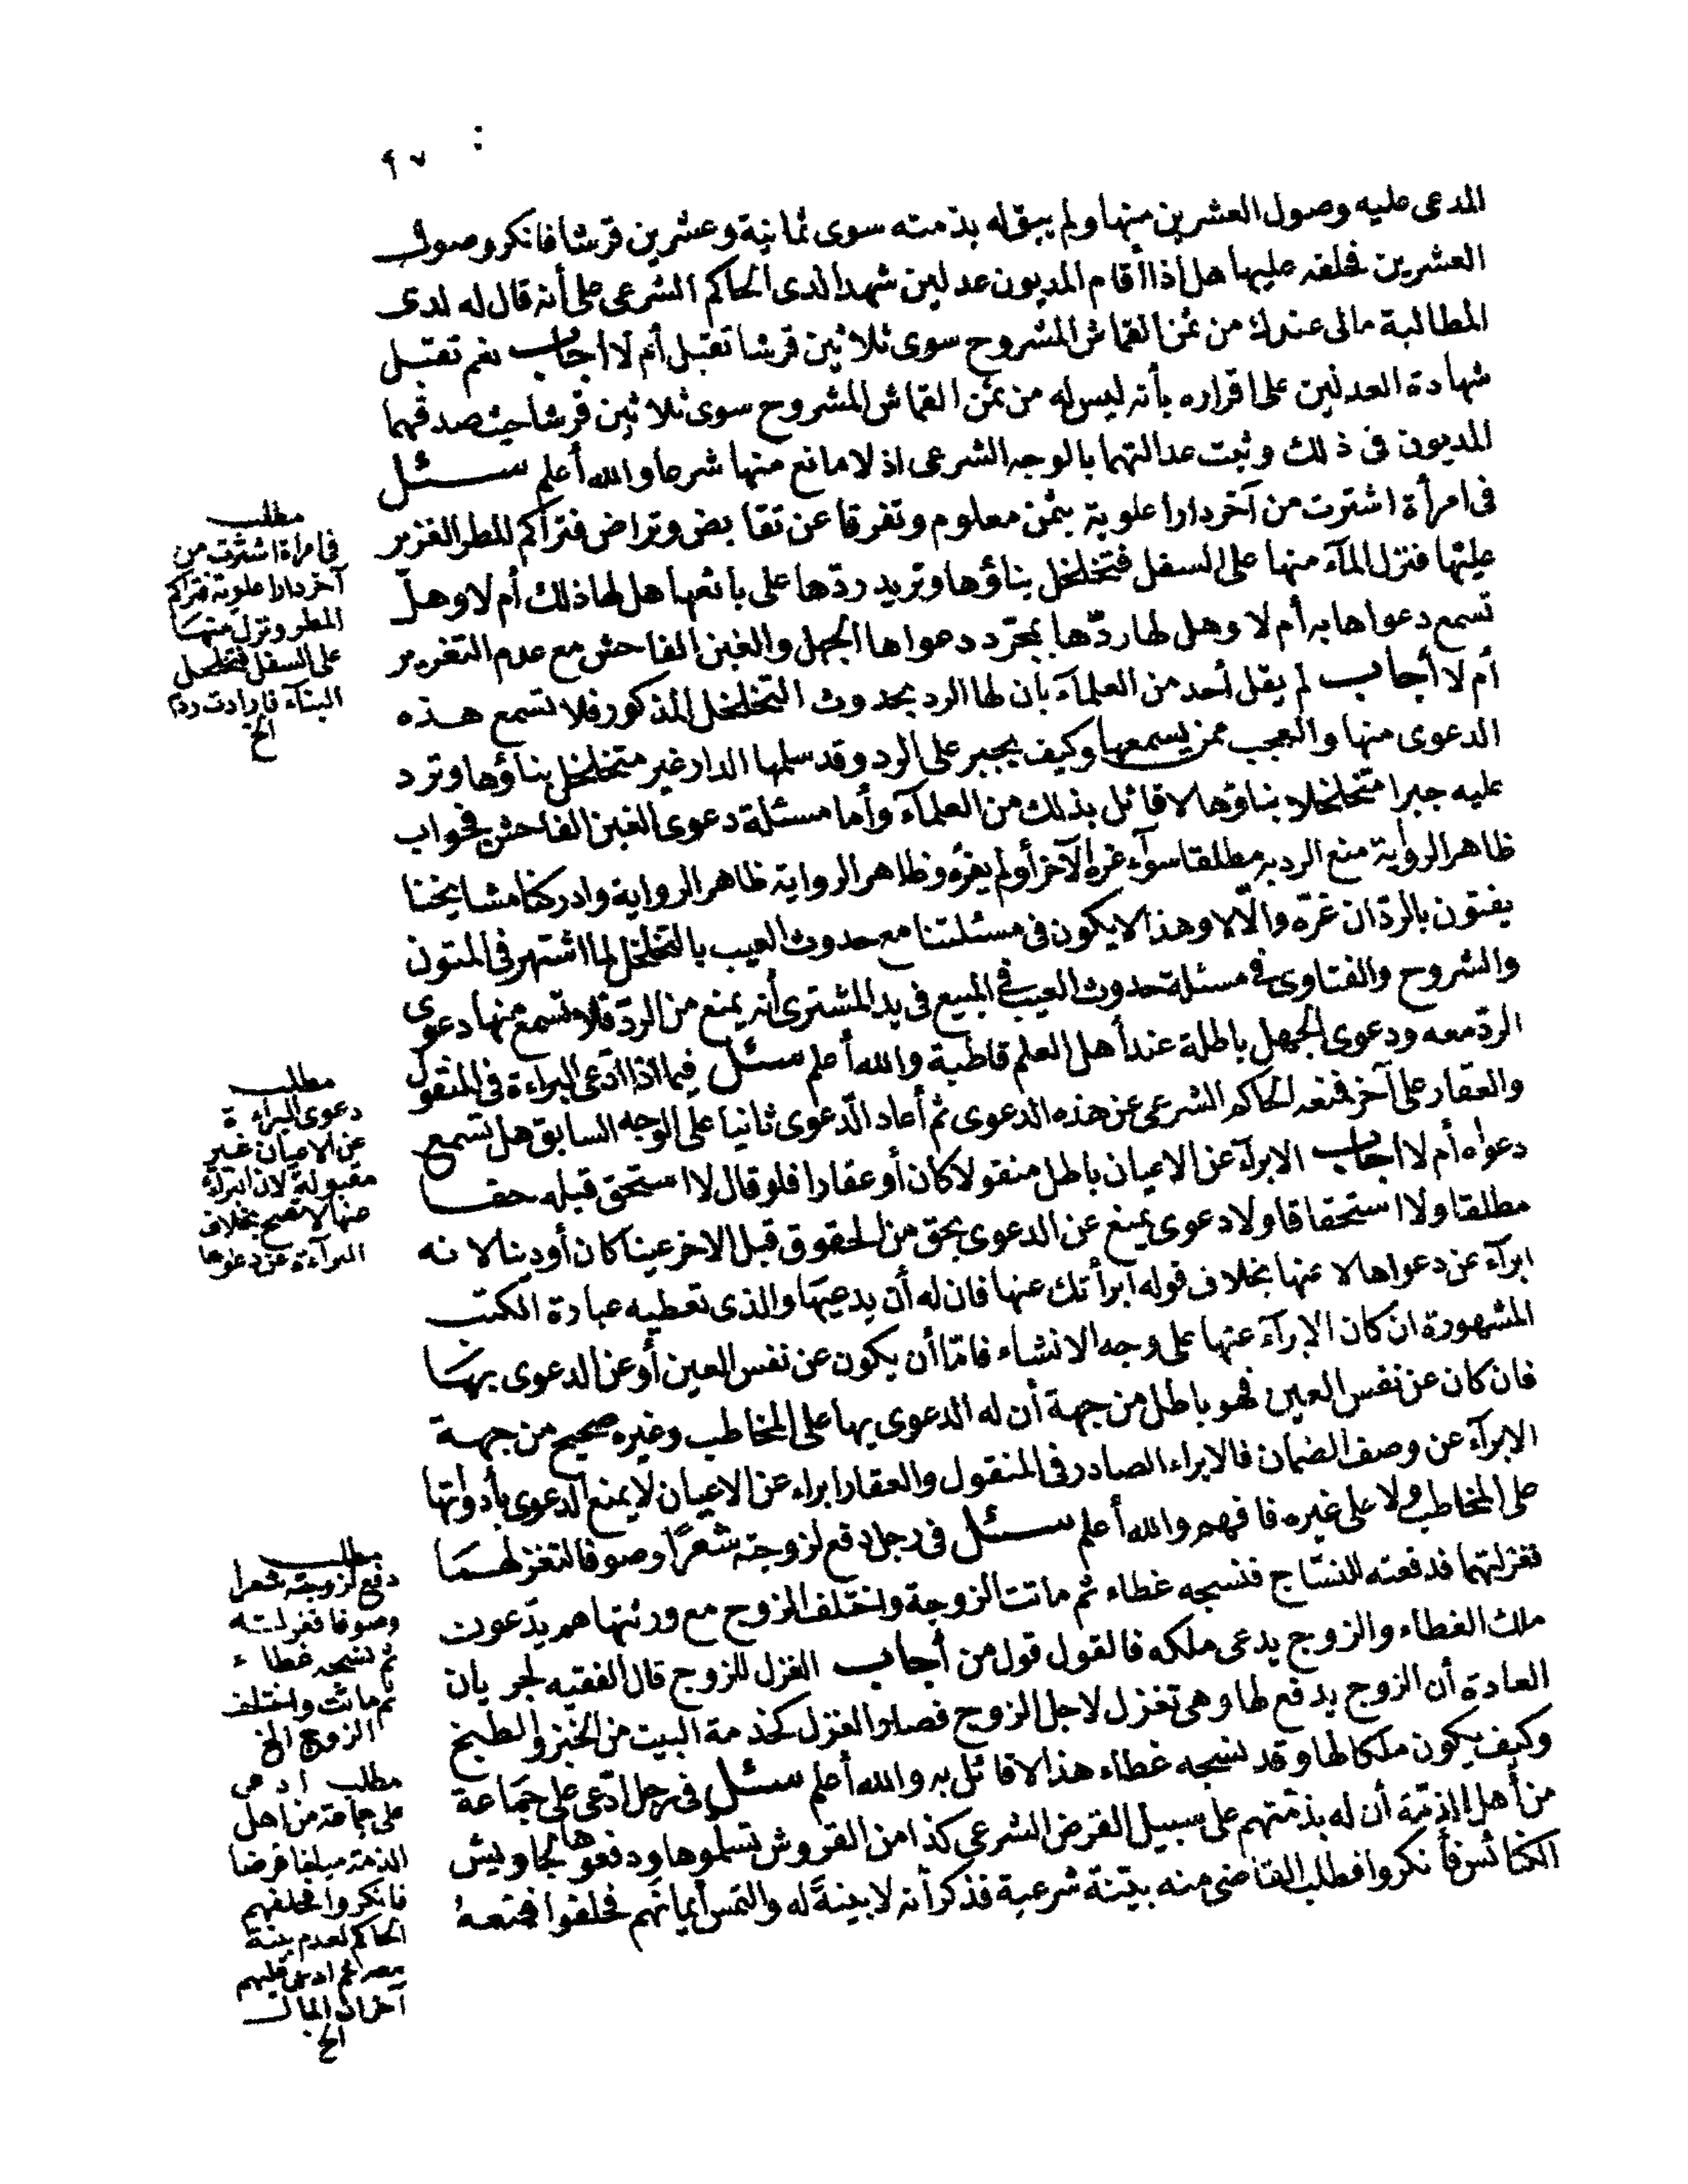 ٩٧
المدعى عليه وصول العشرين منها ولم يبق له بذمته سوى ثمانية وعشرين قرشا فانكر وصول
العشرين فحلفه عليها هل اذا أقام المديون عدلين شهدا لدى الحاكم الشرعى على أنه قال له لدى
المطالبة مالى عندك من ثمن القماش المشروح سوى ثلاثين قرشا تقبل أم لا أجاب نعم تقبل
شهادة العدلين على اقراره بأنه ليس له من ثمن القماش المشروح سوى ثلاثين قرشا حيث صدقهما
المديون فى ذلك وثبت عدالتهما بالوجه الشرعى اذ لا مانع منها شرعا والله أعلم سئل
فى امرأة اشترت من آخر دارا علوية بثمن معلوم وتفرقا عن تقابض وتراض فتراكم المطر الغزير
عليها فنزل المآء منها على السفل فتخلخل بناؤها وتريد ردّها على بائعها هل لها ذلك أم لا وهل
تسمع دعواها به أم لا وهل لها ردّها بمجرّد دعواها الجهل والغبن الفاحش مع عدم التغرير
أم لا أجاب لم يقل أحد من العلمآء بان لها الرد بحدوث التخلخل المذكور فلا تسمع هذه
الدعوى منها والعجب ممن يسمعها وكيف يجبر على الرد وقد سلمها الدار غير متخلخل بناؤها وترد
عليه جبرا متخلخلا بناؤها لا قائل بذلك من العلمآء وأما مسئلة دعوى الغبن الفاحش فجواب
ظاهر الرواية منع الرد به مطلقا سوآء غره الآخر أو لم يغره وظاهر الرواية ظاهر الرواية وادركنا مشايخنا
يفتون بالردّ ان غرّه والّا لا وهذا لا يكون فى مسئلتنا مع حدوث العيب بالتخلخل لما اشتهر فى المتون
والشروح والفتاوى فى مسئلة حدوث العيب فى المبيع فى يد المشترى أنه يمنع من الردّ فلا تسمع منها دعوى
الردّ معه ودعوى الجهل باطلة عند أهل العلم قاطبة والله أعلم سئل فيما اذا ادّعى البراءة فى المنقول
والعقار على آخر فمنعه الحاكم الشرعى عن هذه الدعوى ثم أعاد الدّعوى ثانيا على الوجه السابق هل تسمع
دعواه أم لا أجاب الابرآء عن الاعيان باطل منقولا كان أو عقارا فلو قال لا استحق قبله حقا
مطلقا ولا استحقاقا ولا دعوى يمنع عن الدعوى بحق من الحقوق قبل الاخر عينا كان أو دينا لانه
ابرآء عن دعواها لا عنها بخلاف قوله أبرأتك عنها فان له أن يدعيها والذى تعطيه عبارة الكتب
المشهورة ان كان الابرآء عنها على وجه الانشاء فامّا أن يكون عن نفس العين أو عن الدعوى بها
فان كان عن نفس العين فهو باطل من جهة أن له الدعوى بها على المخاطب وغيره صحيح من جهة
الابرآء عن وصف الضمان فالابراء الصادر فى المنقول والعقار ابراء عن الاعيان لا يمنع الدعوى بأدواتها
على المخاطب ولا على غيره فافهم والله أعلم سئل فى رجل دفع لزوجته شعرًا وصوفا لتغزلهما
فغزلتهما فدفعته للنسّاج فنسجه غطاء ثم ماتت الزوجة واختلف الزوج مع ورثتها هم يدّعون
ملك الغطاء والزوج يدعى ملكه فالقول قول من أجاب الغزل للزوج قال الفقيه لجريان
العادة أن الزوج يدفع لها وهى تغزل لاجل الزوج فصار الغزل كخدمة البيت من الخبز والطبخ
وكيف يكون ملكا لها وقد نسجه غطاء هذا لا قائل به والله أعلم سئل فى رجل ادّعى على جماعة
من أهل الذمّة أن له بذمّتهم على سبيل القرض الشرعى كذا من القروش تسلموها ودفعوها لجاويش
الكنائس فأنكروا فطلب القاضى منه بيّنة شرعية فذكر أنه لا بينة له والتمس أيمانهم فحلفوا فمنعه
مطلب
فى امراة اشترت من
آخر دارا علوية فتراكم
المطر ونزل منها
على السفل فتخلخل
البناء فارادت ردها
الخ
مطلب
دعوى البراءة
عن الاعيان غير
مقبولة لان البرآءة
عنها لا تصح بخلاف
البرآءة عن دعواها
مطلب
دفع لزوجته شعرا
وصوفا فغزلته
ثم نسجه غطاء
ثم ماتت واختلف
الزوج الخ
مطلب ادعى
على جماعة من اهل
الذمة مبلغا قرضا
فانكروا فحلفهم
الحاكم لعدم بينة
ثم ادعى عليهم
آخر المال
الخ